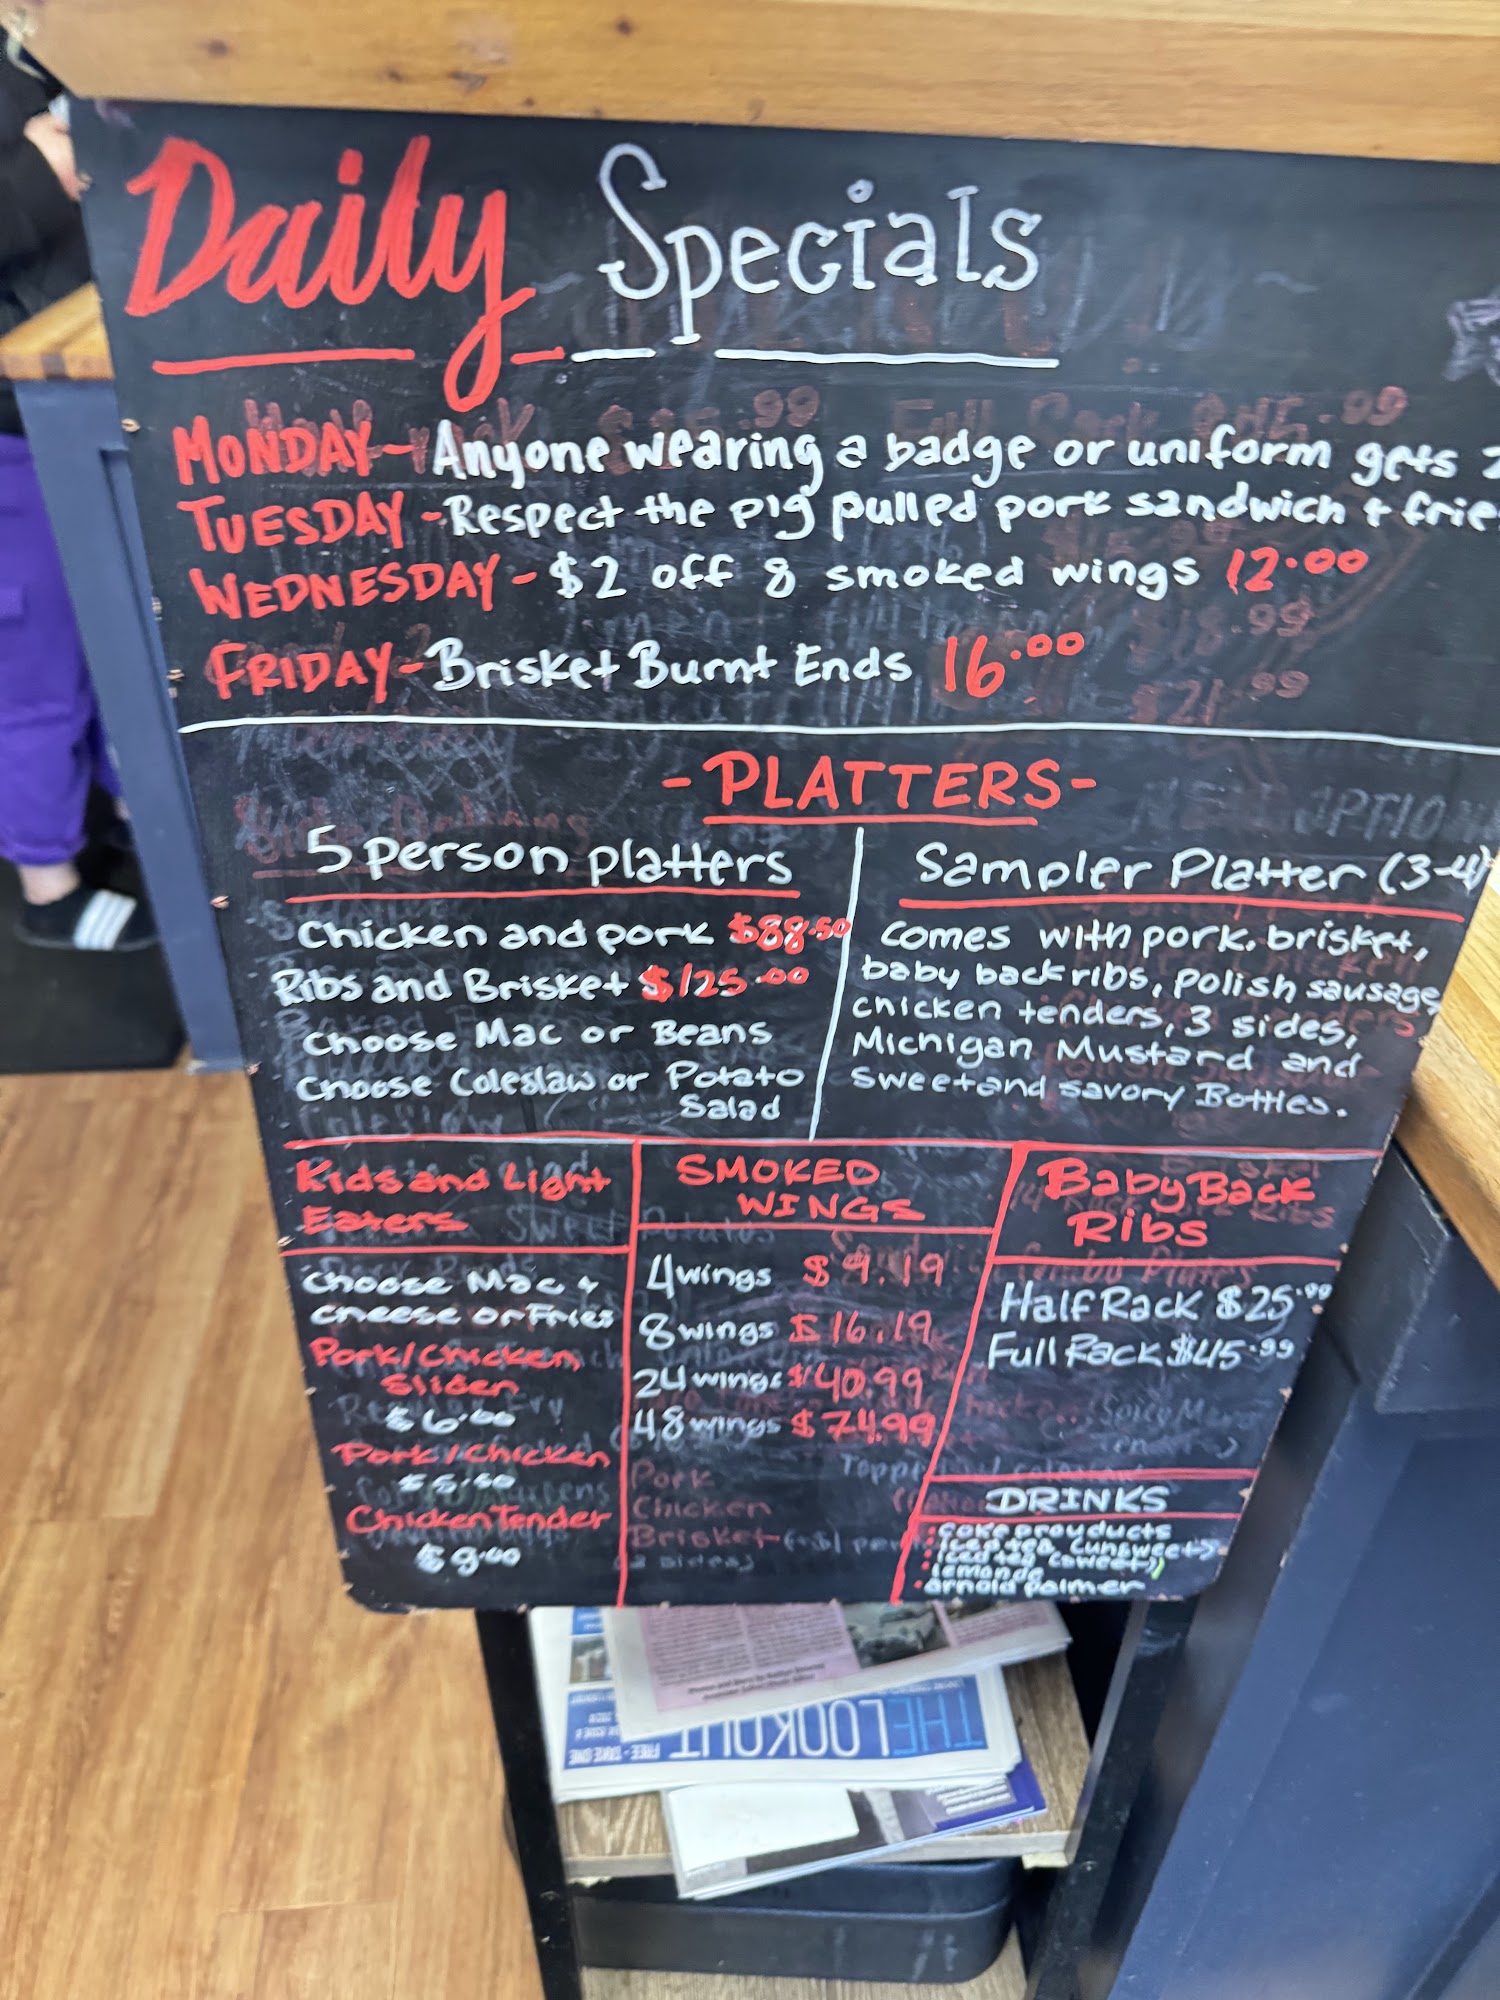 Daily Specials
MONDAY - Anyone wearing a badge or uniform gets
TUESDAY - Respect the pig pulled pork sandwich + frie
WEDNESDAY - $2 off 8 smoked wings 12.00
FRIDAY - Brisket Burnt Ends 16.00
- PLATTERS -
5 person platters
Chicken and pork $88.50
Ribs and Brisket $125.00
Choose Mac or Beans
Choose Coleslaw or Potato
Salad
Sampler Platter (3-4)
comes with pork, brisket,
baby back ribs, polish sausage,
chicken tenders, 3 sides,
Michigan Mustard and
sweet and savory Bottles.
Kids and Light
Eaters
Choose Mac +
cheese or Fries
Pork/Chicken,
Slider
$6.00
Pork/Chicken
$5.50
Chicken Tender
$9.00
SMOKED
WINGS
4 wings $9.19
8 wings $16.19
24 wings $40.99
48 wings $74.99
Pork
Chicken
Brisket
Baby Back
Ribs
Half Rack $25.99
Full Rack $45.99
DRINKS
• coke proyducts
• iced tea (unsweet)
• iced tea (sweet)
• lemonde
• arnold palmer
THE LOOKOUT
FREE - TAKE ONE